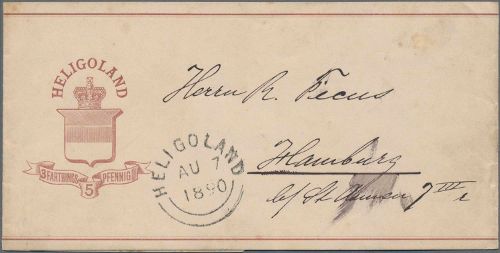 HELIGOLAND
3 FARTHINGS 5 PFENNIG
Herrn R. Ficus
HELIGOLAND
AU 7
1890
Hamburg
b/ St. 7 III